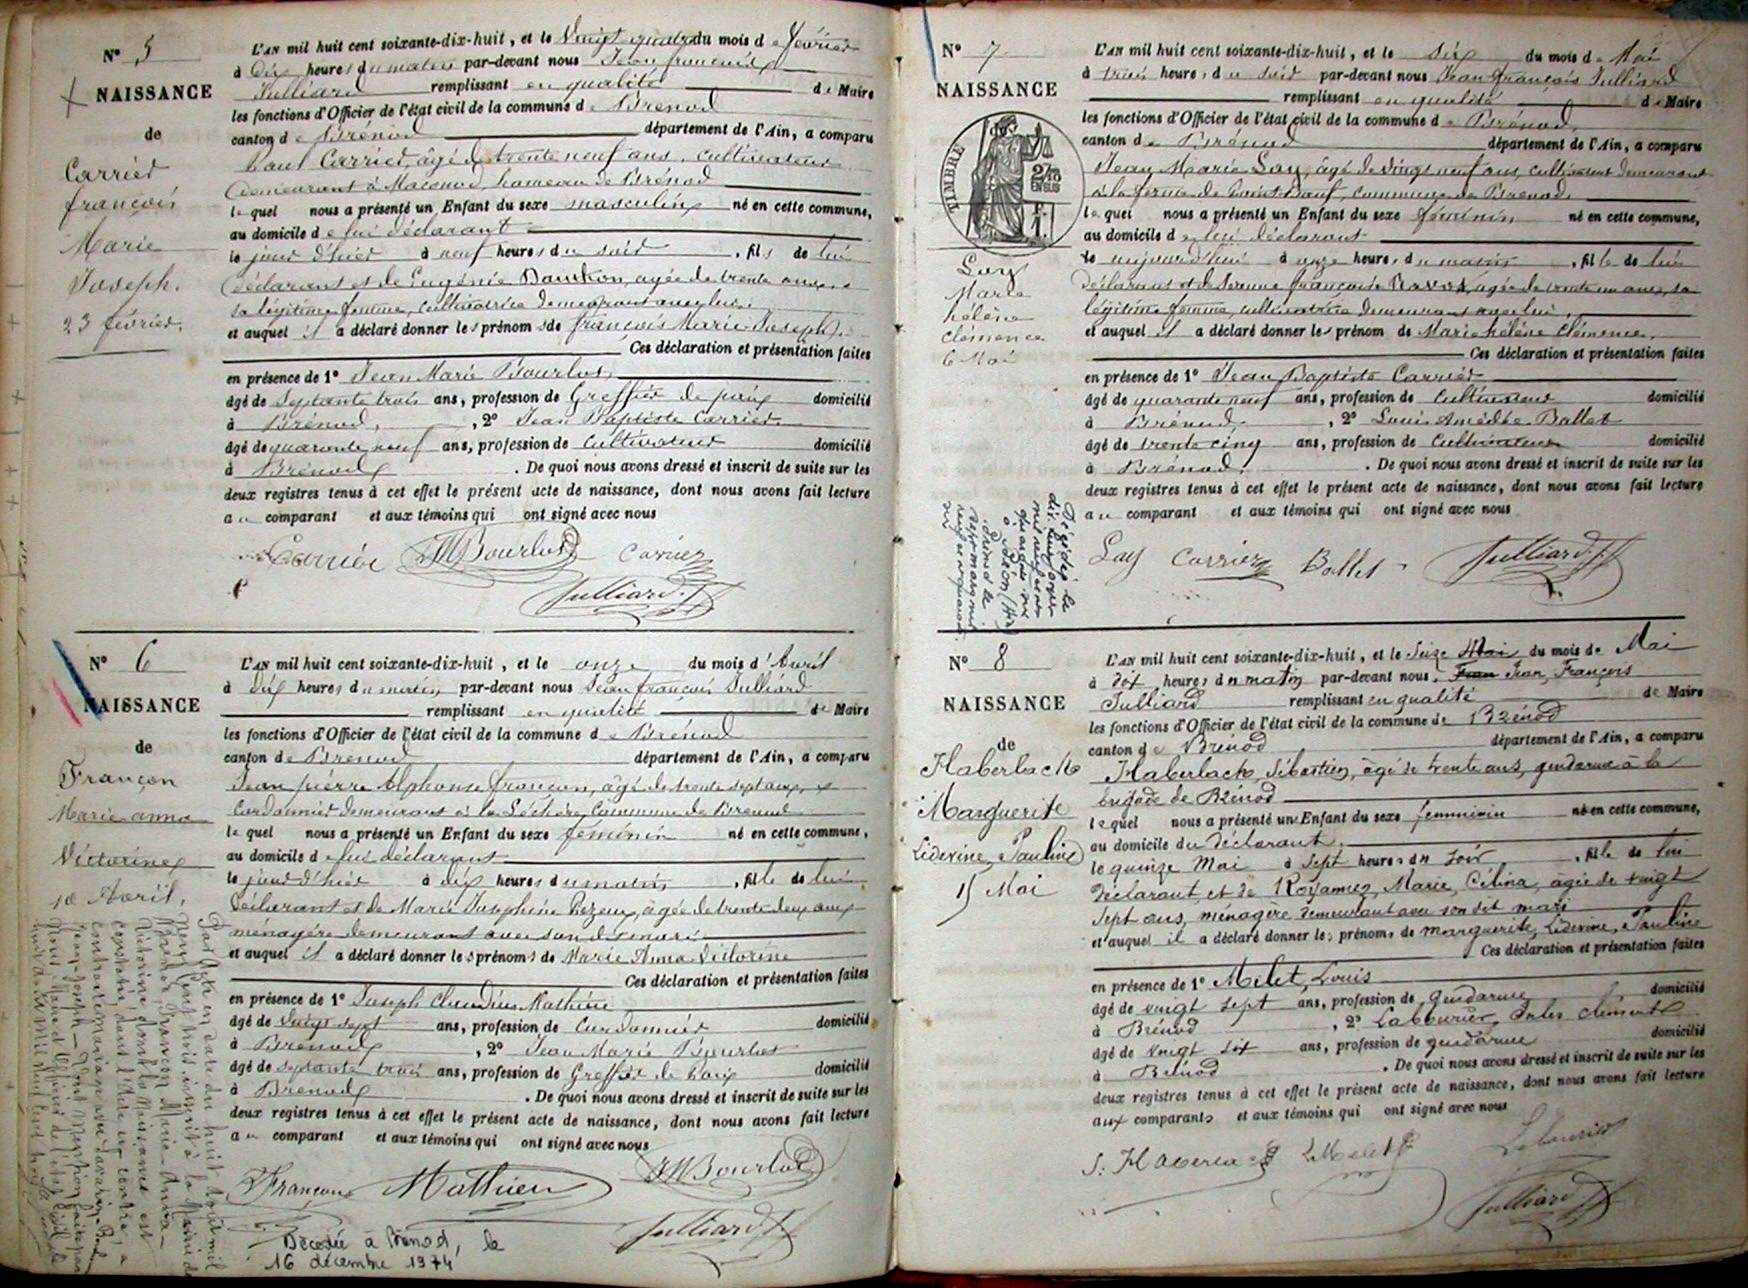 N° 5
NAISSANCE
de
Carrier
françois
Marie
Joseph.
23 février.
L'AN mil huit cent soixante-dix-huit, et le Vingt quatre du mois de février
à Dix heures du matin par-devant nous Jean françois
Julliard remplissant en qualité de Maire
les fonctions d'Officier de l'état civil de la commune de Brénod
canton de Brénod département de l'Ain, a comparu
Paul Carrier âgé de trente neuf ans, cultivateur
demeurant à Macconod, hameau de Brénod
lequel nous a présenté un Enfant du sexe masculin né en cette commune,
au domicile de lui déclarant
le jour d'hier à neuf heures du soir, fils de lui
déclarant et de Eugénie agée de trente
sa légitime femme, cultivatrice demeurant avec lui.
et auquel il a déclaré donner les prénoms de françois Marie Joseph.
Ces déclaration et présentation faites
en présence de 1° Jean Marie Bourlot,
âgé de Septante trois ans, profession de Greffier de paix domicilié
à Brénod, 2° Jean Baptiste Carrier
âgé de quarante neuf ans, profession de Cultivateur domicilié
à Brénod. De quoi nous avons dressé et inscrit de suite sur les
deux registres tenus à cet effet le présent acte de naissance, dont nous avons fait lecture
au comparant et aux témoins qui ont signé avec nous
Carrier JMBourlot Carrier
Julliard J.f.
N° 6
NAISSANCE
de
Françon
Marie anna
Victorine
10 Avril.
L'AN mil huit cent soixante-dix-huit, et le onze du mois d'Avril
à dix heures du matin par-devant nous Jean françois Julliard
remplissant en qualité de Maire
les fonctions d'Officier de l'état civil de la commune de Brénod
canton de Brénod département de l'Ain, a comparu
Jean pierre Alphonse françon, âgé de trente sept ans,
Cordonnier demeurant à la Léchère, Commune de Brénod
lequel nous a présenté un Enfant du sexe féminin né en cette commune,
au domicile de lui déclarant
le jour d'hier à dix heures du matin, fille de lui
déclarant et de Marie Josephine agée de trente deux ans
ménagère demeurant avec son dit mari
et auquel il a déclaré donner les prénoms de Marie Anna Victorine
Ces déclaration et présentation faites
en présence de 1° Joseph Claudius Mathieu
âgé de Vingt sept ans, profession de Cordonnier domicilié
à Brénod, 2° Jean Marie Bourlot
âgé de septante trois ans, profession de Greffier de paix domicilié
à Brénod. De quoi nous avons dressé et inscrit de suite sur les
deux registres tenus à cet effet le présent acte de naissance, dont nous avons fait lecture
au comparant et aux témoins qui ont signé avec nous
Françon Mathieu JMBourlot
Julliard J.f.
Par Acte en date du huit
inscrit à la Mairie de
Françon Marie-Anna-
Victorine, dont la Naissance est
constatée dans l'Acte ci-contre, a
contracté mariage avec
Décédée à Brénod, le
16 décembre 1974
N° 7
NAISSANCE
TIMBRE
2/10
EN SUS
F.
1.
Lay
Marie
hélène
clémence
6 Mai
L'AN mil huit cent soixante-dix-huit, et le six du mois de Mai
à trois heures du soir par-devant nous Jean françois Julliard
remplissant en qualité de Maire
les fonctions d'Officier de l'état civil de la commune de Brénod,
canton de Brénod département de l'Ain, a comparu
Jean Marie Lay, âgé de vingt neuf ans, cultivateur demeurant
à la ferme de commune de Brénod,
lequel nous a présenté un Enfant du sexe féminin né en cette commune,
au domicile de lui déclarant
le aujourd'hui à onze heures du matin, fille de lui
déclarant et de françoise agée de trente un ans, sa
légitime femme, cultivatrice demeurant avec lui,
et auquel il a déclaré donner les prénom de Marie hélène clémence,
Ces déclaration et présentation faites
en présence de 1° Jean Baptiste Carrier
âgé de quarante neuf ans, profession de Cultivateur domicilié
à Brénod, 2° Louis Amédée Ballet
âgé de trente cinq ans, profession de Cultivateur domicilié
à Brénod. De quoi nous avons dressé et inscrit de suite sur les
deux registres tenus à cet effet le présent acte de naissance, dont nous avons fait lecture
au comparant et aux témoins qui ont signé avec nous
Lay Carrier Ballet Julliard J.f.
N° 8
NAISSANCE
de
Haberbach
Marguerite
Lidivine, Pauline
15 Mai
L'AN mil huit cent soixante-dix-huit, et le Seize Mai du mois de Mai
à dix heures du matin par-devant nous, Fran Jean, François
Julliard remplissant en qualité de Maire
les fonctions d'Officier de l'état civil de la commune de Brénod
canton de Brénod département de l'Ain, a comparu
Haberbach, Sébastien, âgé de trente ans, gendarme à la
brigade de Brénod
lequel nous a présenté un Enfant du sexe femminin né en cette commune,
au domicile du déclarant.
le quinze Mai à Sept heures du soir, fille de lui
déclarant, et de Marie, Célina, âgée de vingt
sept ans, ménagère demeurant avec son dit mari
et auquel il a déclaré donner les prénoms de marguerite, Lidivine, Pauline
Ces déclaration et présentation faites
en présence de 1° Milet, Louis
âgé de vingt sept ans, profession de gendarme domicilié
à Brénod, 2° Labourier, Jules Clément
âgé de vingt six ans, profession de gendarme domicilié
à Brénod. De quoi nous avons dressé et inscrit de suite sur les
deux registres tenus à cet effet le présent acte de naissance, dont nous avons fait lecture
aux comparants et aux témoins qui ont signé avec nous
S. Haberbach L Milet Labourier
Julliard J.f.